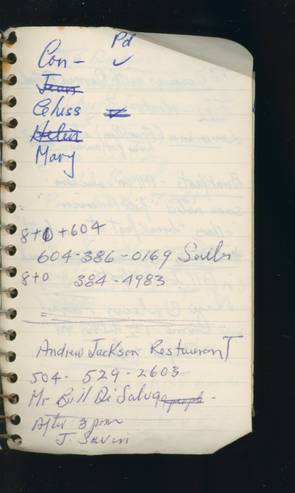 Pd
Con - ✓
Jean
Chess
Helen
Mary
8+0+604
604-386-0169
8+0 384-4983
Andrew Jackson Restaurant
504- 529-2603
Mr Bill DiSalvo -
After 3 pm
J. Savin